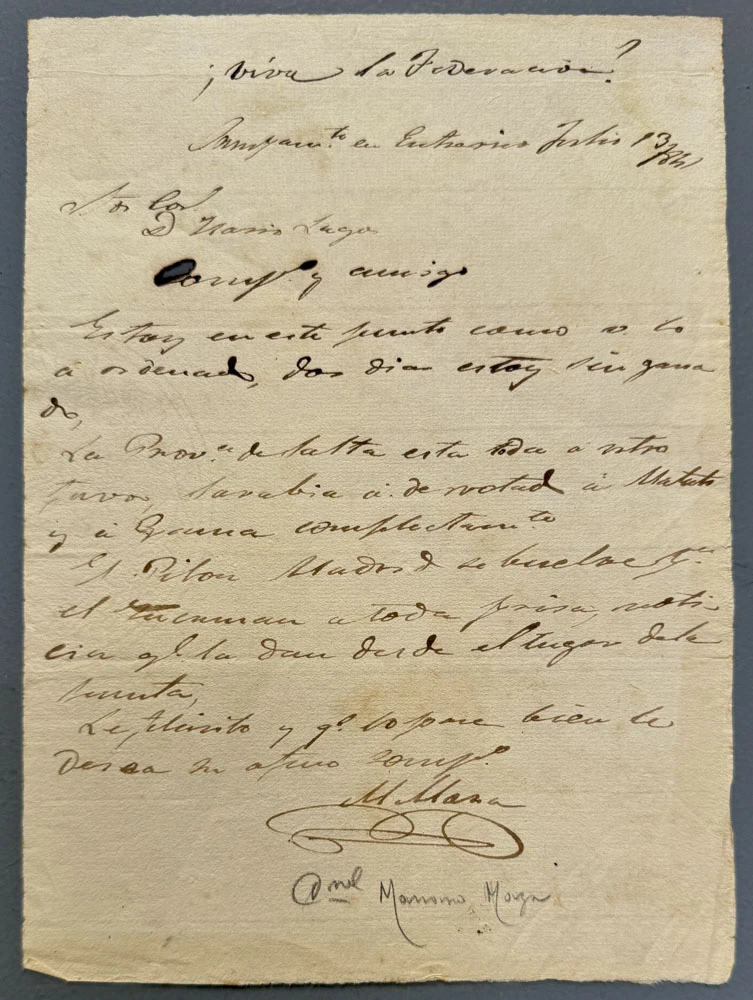 ¡Viva la Federacion!
Campam.to en Julio 13/841
S.or Cor.l
D. Lagos
Comp.o y amigo
Estoy en este punto como v. lo
á ordenado, dos dias estoy sin gana
do,
La Prov.a de Salta esta toda a ntro
favor, Sarabia á derrotad á Matuto
y á completam.te
El Pilon Madrid se buelve p.a
el Tucuman a toda prisa, noti
cia q.e la dan desde el lugar de la
punta,
Le felisito y q.e lo pase bien le
desea su afmo Comp.o
M. Maza
Mariano Maza